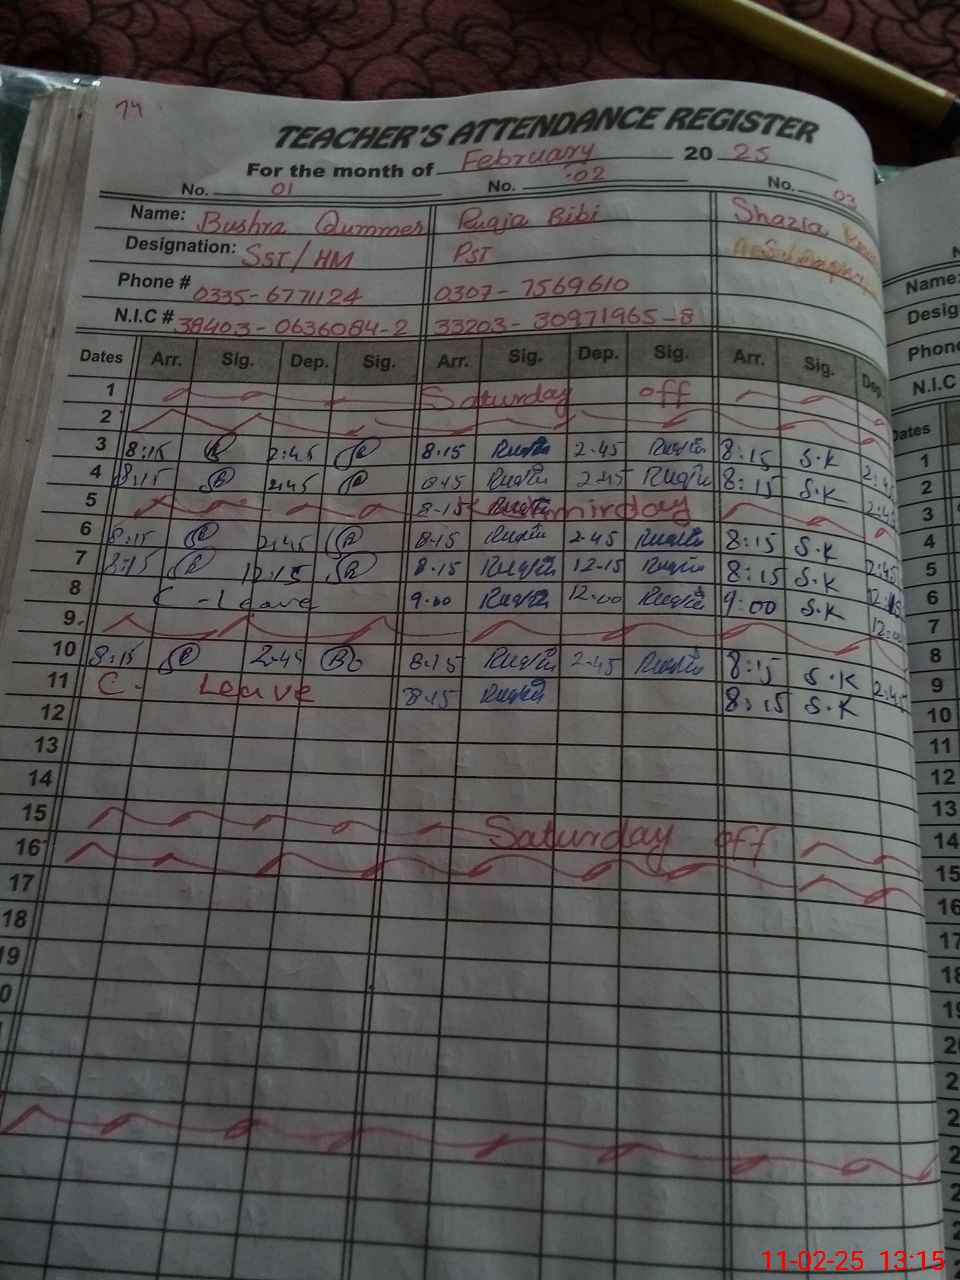 14
TEACHER'S ATTENDANCE REGISTER
For the month of February 2025
No. 01 No. 02 No. 03
Name: Bushra Qummer Ruqia Bibi Shazia
Designation: SST/HM PST
Phone # 0335-6771124 0307-7569610
N.I.C # 38403-0636084-2 33203-30971965-8
Dates Arr. Sig. Dep. Sig. Arr. Sig. Dep. Sig. Arr. Sig. Dep
1 Saturday off
2
3 8:15 2:45 8.15 Ruqia 2-45 Ruqia 8:15 S.K
4 8:15 2:45 8:15 Ruqia 2-45 Ruqia 8:15 S.K
5 8-15
6 8:15 2:45 8:15 Ruqia 2-45 Ruqia 8:15 S.K 2:45
7 8:15 12:15 8.15 Ruqia 12-15 Ruqia 8:15 S.K 12:15
8 C-Leave 9.00 Ruqia 12:00 Ruqia 9:00 S.K
9
10 8:15 2-45 8:15 Ruqia 2-45 Ruqia 8:15 S.K 2:45
11 C. Leave 8:15 Ruqia 8:15 S.K
12
13
14
15 Saturday off
16
17
18
19
0
Name:
Desig
Phone
N.I.C
Dates
1
2
3
4
5
6
7
8
9
10
11
12
13
14
15
16
11-02-25 13:15